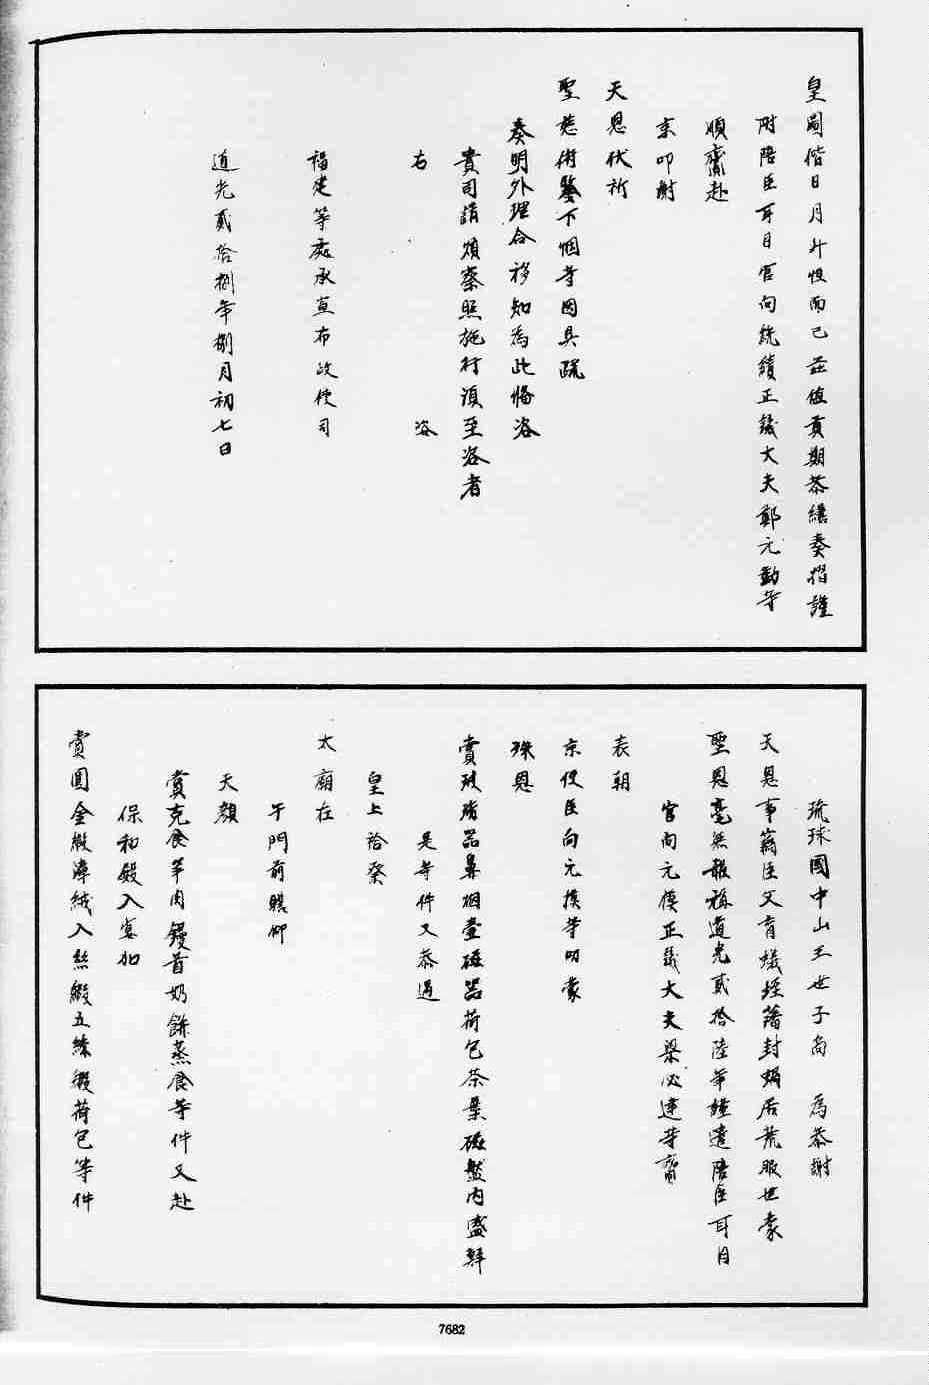 皇圖偕日月升恒而已茲值貢期恭繕奏摺謹
附陪臣耳目官向統績正議大夫鄭元勳等
順齎赴
京叩謝
天恩伏祈
聖慈俯鑒下悃等因具疏
奏明外理合移知為此備咨
貴司請煩察照施行須至咨者
右　咨
福建等處承宣布政使司
道光貳拾捌年捌月初七日
琉球國中山王世子尚　為恭謝
天恩事竊臣父育蟻垤藩封蝸居荒服世蒙
聖恩毫無報稱道光貳拾陸年謹遣陪臣耳目
官向元模正議大夫梁必達等齎
表朝
京使臣向元模等叨蒙
殊恩
賞玻璃器鼻烟壺磁器荷包茶葉磁盤內盛鮮
是等件又恭遇
皇上祫祭
太廟在
午門前瞻仰
天顏
賞克食羊肉饅首奶餅蒸食等件又赴
保和殿入宴加
賞圓金緞漳絨入絲緞五綵緞荷包等件
7682